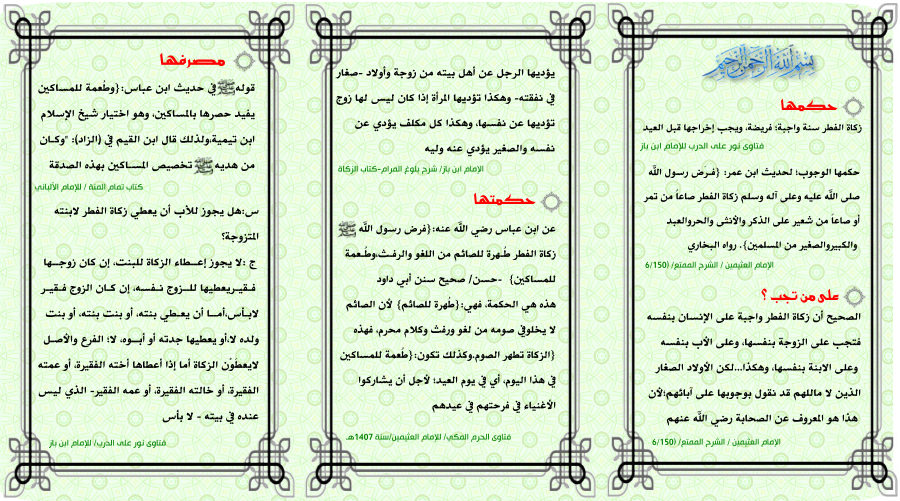 بسم الله الرحمن الرحيم
حكمها
زكاة الفطر سنة واجبة؛ فريضة، ويجب إخراجها قبل العيد
فتاوى نور على الدرب للإمام ابن باز
حكمها الوجوب؛ لحديث ابن عمر: {فرض رسول الله
صلى الله عليه وعلى آله وسلم زكاة الفطر صاعاً من تمر
أو صاعاً من شعير على الذكر والأنثى والحروالعبد
والكبيروالصغير من المسلمين}. رواه البخاري
الإمام العثيمين / الشرح الممتع/ (6/150
على من تجب ؟
الصحيح أن زكاة الفطر واجبة على الإنسان بنفسه
فتجب على الزوجة بنفسها، وعلى الأب بنفسه
وعلى الابنة بنفسها، وهكذا...لكن الأولاد الصغار
الذين لا ماللهم قد نقول بوجوبها على آبائهم؛لأن
هذا هو المعروف عن الصحابة رضي الله عنهم
الإمام العثيمين / الشرح الممتع/ (6/150
يؤديها الرجل عن أهل بيته من زوجة وأولاد -صغار
في نفقته- وهكذا تؤديها المرأة إذا كان ليس لها زوج
تؤديها عن نفسها، وهكذا كل مكلف يؤدي عن
نفسه والصغير يؤدي عنه وليه
الإمام ابن باز/ شرح بلوغ المرام-كتاب الزكاة
حكمتها
عن ابن عباس رضي الله عنه:{فرض رسول الله ﷺ
زكاة الفطر طُهرة للصائم من اللغو والرفث،وطُعمة
للمساكين} -حسن/ صحيح سنن أبي داود
هذه هي الحكمة، فهي: {طُهرة للصائم} لأن الصائم
لا يخلوفي صومه من لغو ورفث وكلام محرم، فهذه
{الزكاة تطهر الصوم.وكذلك تكون: {طُعمة للمساكين
في هذا اليوم، أي في يوم العيد؛ لأجل أن يشاركوا
الأغنياء في فرحتهم في عيدهم
فتاوى الحرم المكي/ للإمام العثيمين/سنة 1407هـ
مصرفها
قوله ﷺ في حديث ابن عباس: {وطُعمة للمساكين
يفيد حصرها بالمساكين، وهو اختيار شيخ الإسلام
ابن تيمية،ولذلك قال ابن القيم في (الزاد): "وكان
من هديه ﷺ تخصيص المساكين بهذه الصدقة
كتاب تمام المنة / للإمام الألباني
س:هل يجوز للأب أن يعطي زكاة الفطر لابنته
المتزوجة؟
ج :لا يجوز إعطاء الزكاة للبنت، إن كان زوجها
فقيريعطيها للزوج نفسه، إن كان الزوج فقير
لابأس،أما أن يعطي بنته، أو بنت بنته، أو بنت
ولده لا،أو يعطيها جدته أو أبوه، لا؛ الفرع والأصل
لايعطَوْن الزكاة أما إذا أعطاها أخته الفقيرة، أو عمته
الفقيرة، أو خالته الفقيرة، أو عمه الفقير- الذي ليس
عنده في بيته - لا بأس
فتاوى نور على الدرب/ للإمام ابن باز